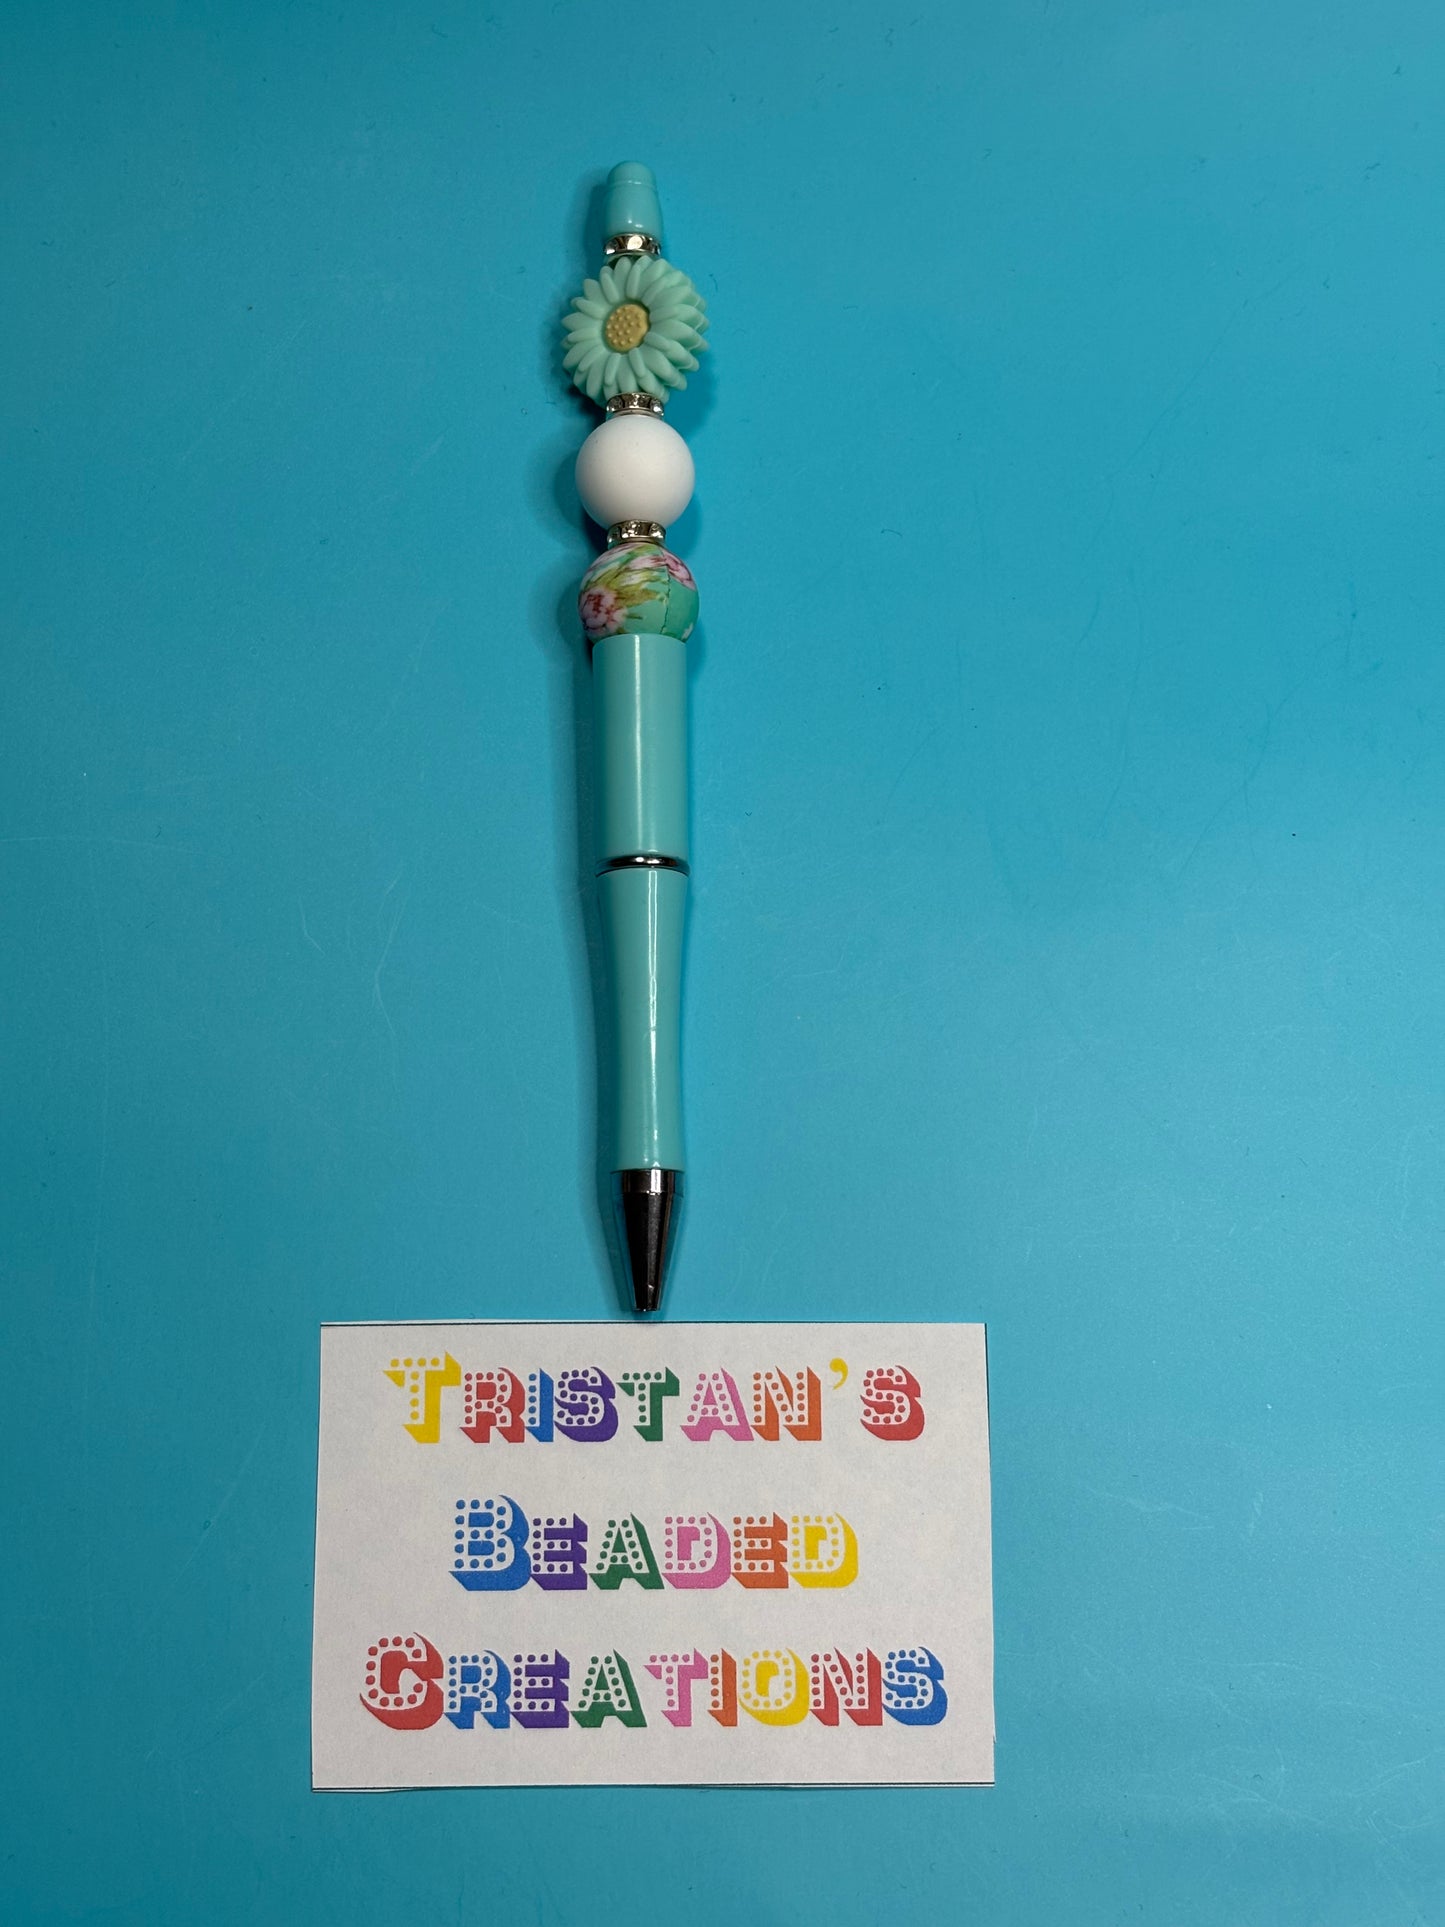 Tristan's
Beaded
Creations